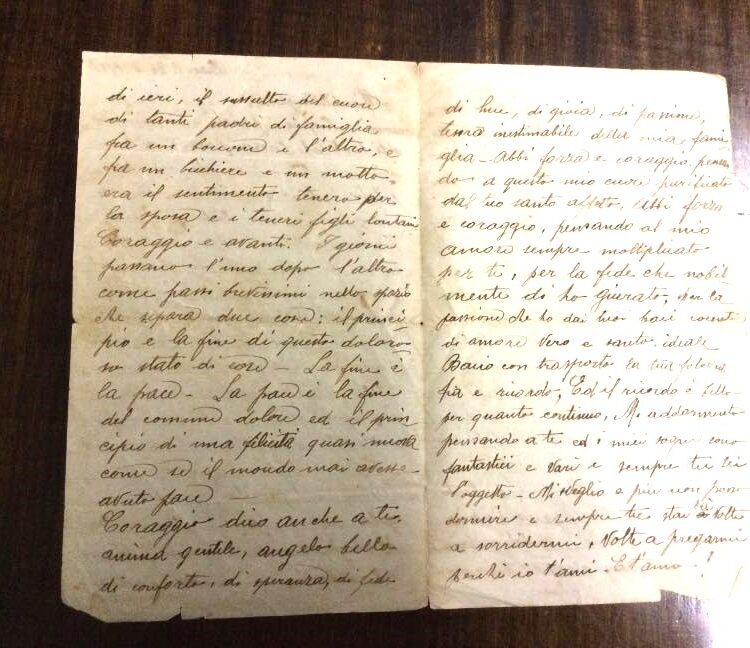 di ieri, il sussulto del cuore
di tanti padri di famiglia
fra un boccone e l'altro, e
fra un bicchiere e un motto
era il sentimento tenero per
la sposa e i teneri figli lontani
Coraggio e avanti. I giorni
passano l'uno dopo l'altro
come passi brevissimi nello spazio
che separa due cose: il princi-
pio e la fine di questo doloro-
so stato di cose - La fine è
la pace - La pace è la fine
del comune dolore ed il prin
cipio di una felicità quasi nuova
come se il mondo mai avesse
avuto pace -
Coraggio dico anche a te,
anima gentile, angelo bello
di conforto, di speranza, di fede
di luce, di gioia, di passione,
inestimabile della mia fami
glia - Abbi forza e coraggio, pensan
do a questo mio cuore purificato
dal tuo santo affetto. Abbi forza
e coraggio, pensando al mio
amore sempre moltiplicato
per te, per la fede che nobil
mente ti ho giurato, per la
passione che ho dai tuoi baci
di amore vero e santo, ideale
Bacio con trasporto la tua fotogra
fia e ricordo, Ed il ricordo è bello
per quanto continuo, Mi addormento
pensando a te ed i miei sogni sono
fantastici e vari e sempre tu sei
l'oggetto - Mi sveglio e più non posso
dormire e sempre tu stai lì volte
a sorridermi, Volte a pregarmi
perché io t'ami - E t'amo - !